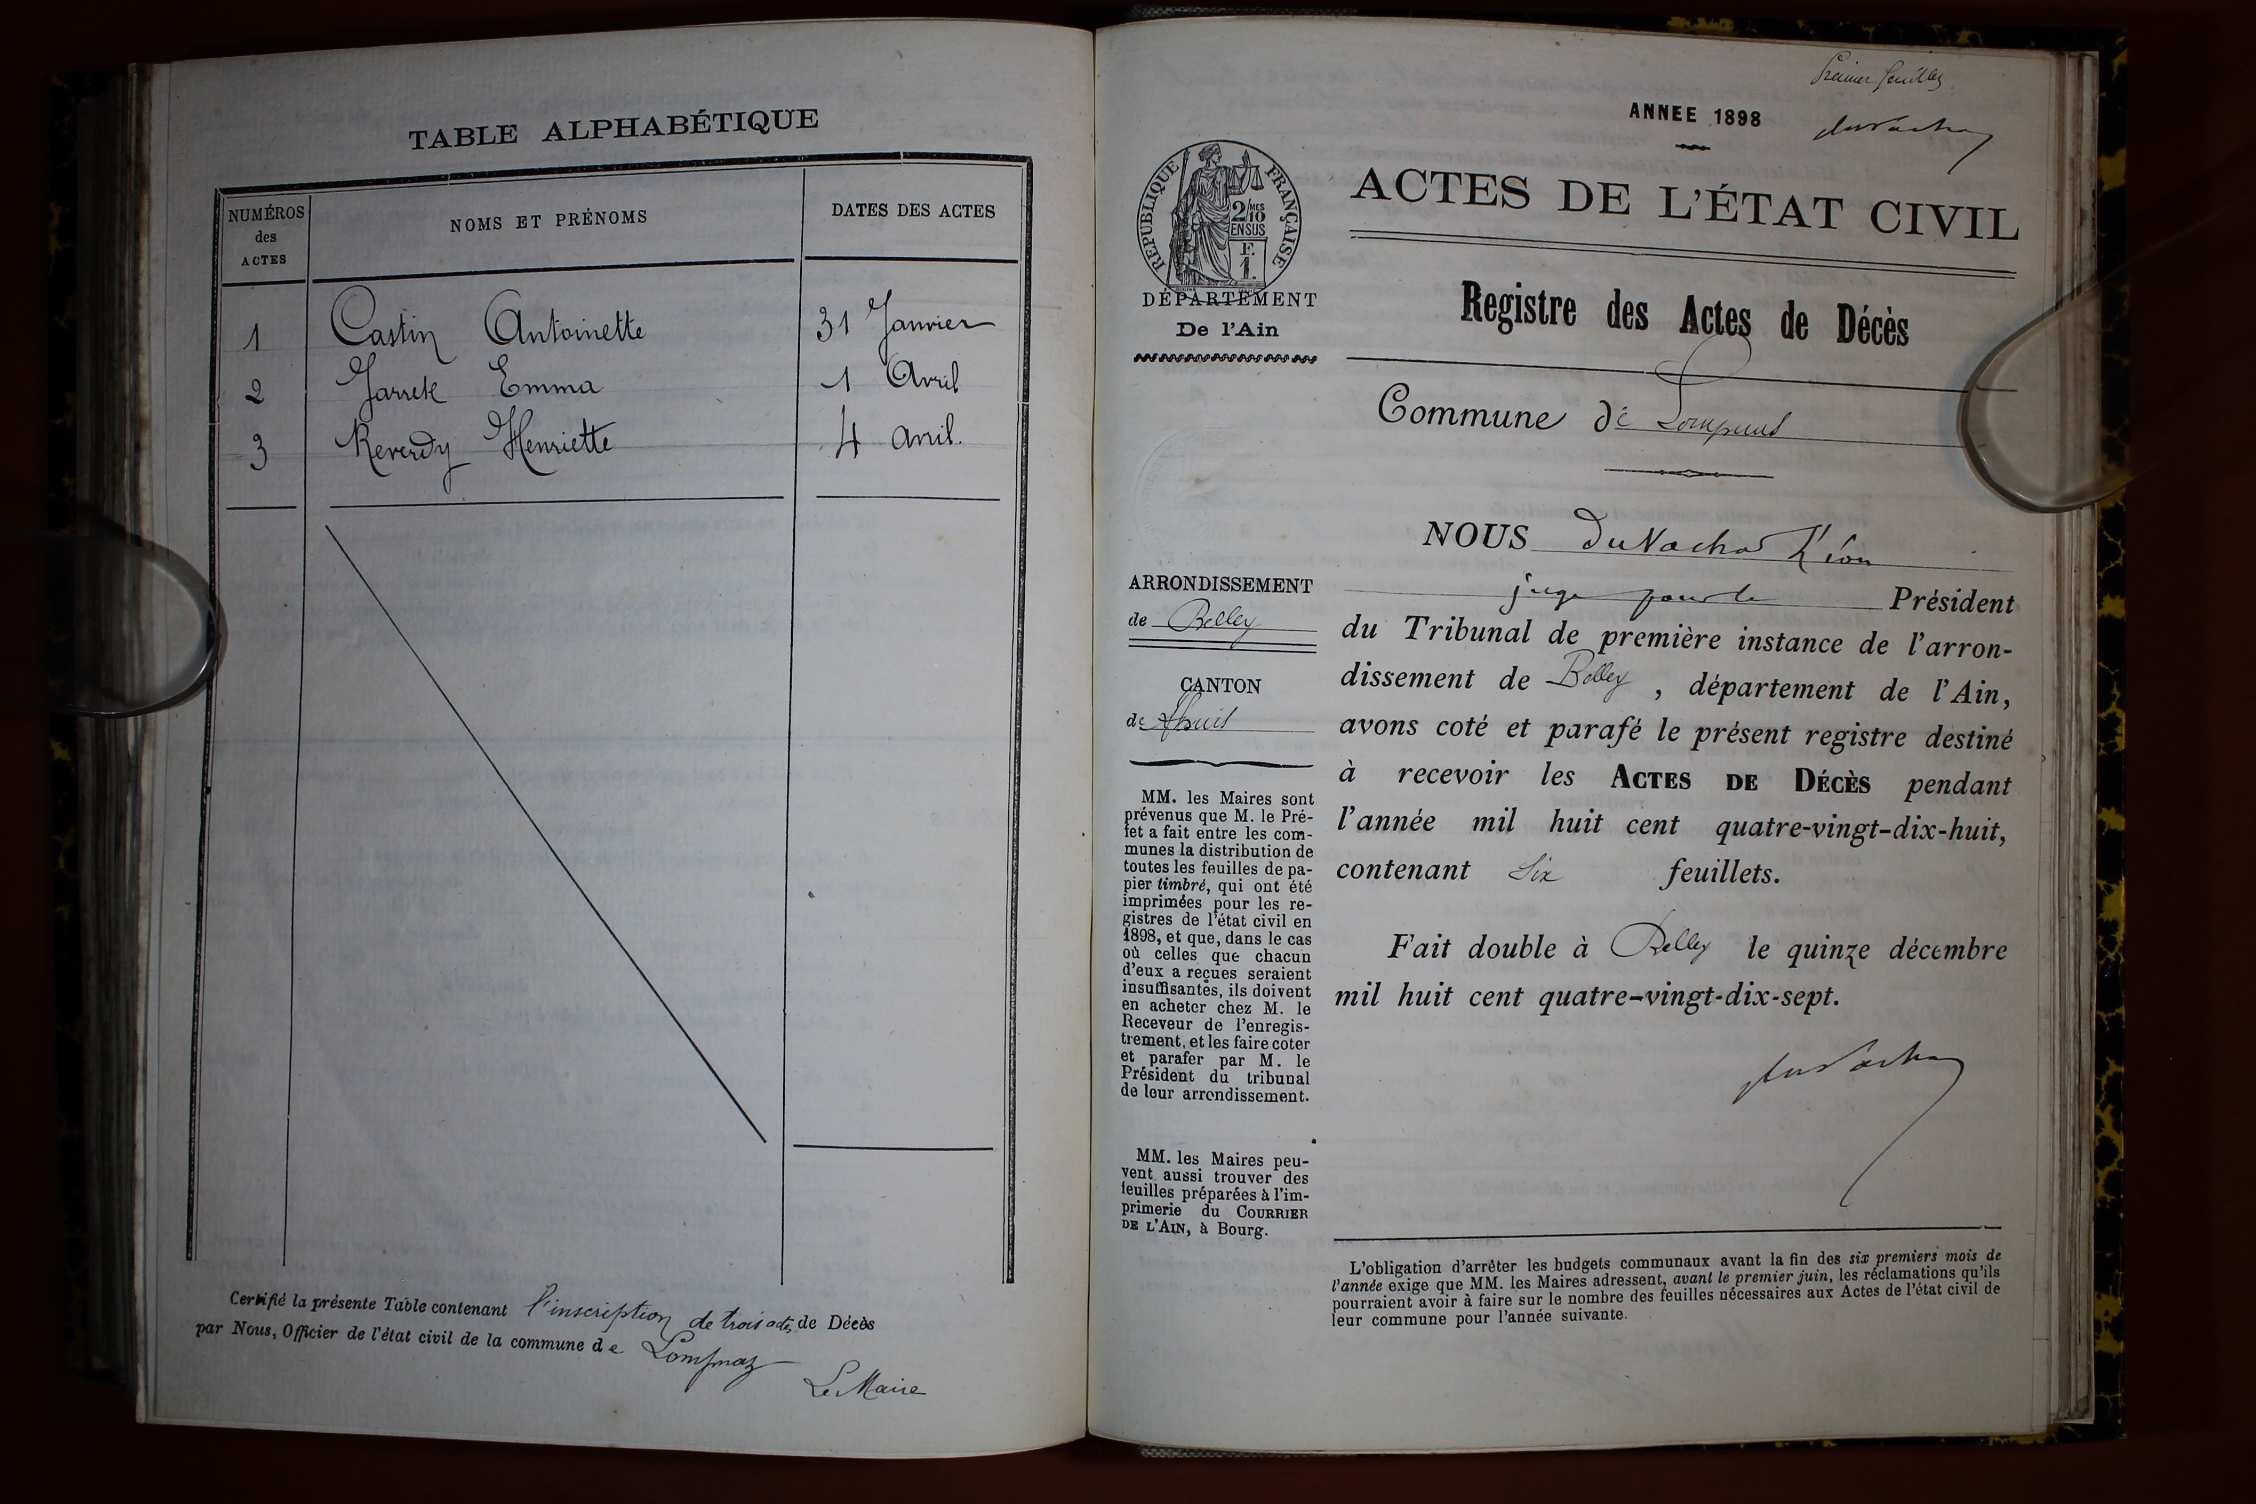 TABLE ALPHABÉTIQUE
NUMÉROS des ACTES
NOMS ET PRÉNOMS
DATES DES ACTES
1 Castin Antoinette 31 Janvier
2 Jarrete Emma 1 Avril
3 Reverdy Henriette 4 avril.
Certifié la présente Table contenant l'inscription de trois actes de Décès
par Nous, Officier de l'état civil de la commune de Lompnaz
Le Maire
Premier feuillet
ANNEE 1898
RÉPUBLIQUE FRANÇAISE
2/10 MES
EN SUS
F.
1.
ACTES DE L'ÉTAT CIVIL
DÉPARTEMENT
De l'Ain
Registre des Actes de Décès
Commune de
NOUS Duvachat Léon
juge pour le Président
du Tribunal de première instance de l'arron-
dissement de Belley, département de l'Ain,
avons coté et parafé le présent registre destiné
à recevoir les ACTES DE DÉCÈS pendant
l'année mil huit cent quatre-vingt-dix-huit,
contenant Six feuillets.
Fait double à Belley le quinze décembre
mil huit cent quatre-vingt-dix-sept.
ARRONDISSEMENT
de Belley
CANTON
de Lhuis
MM. les Maires sont
prévenus que M. le Pré-
fet a fait entre les com-
munes la distribution de
toutes les feuilles de pa-
pier timbré, qui ont été
imprimées pour les re-
gistres de l'état civil en
1898, et que, dans le cas
où celles que chacun
d'eux a reçues seraient
insuffisantes, ils doivent
en acheter chez M. le
Receveur de l'enregis-
trement, et les faire coter
et parafer par M. le
Président du tribunal
de leur arrondissement.
MM. les Maires peu-
vent aussi trouver des
feuilles préparées à l'im-
primerie du COURRIER
DE L'AIN, à Bourg.
L'obligation d'arrêter les budgets communaux avant la fin des six premiers mois de
l'année exige que MM. les Maires adressent, avant le premier juin, les réclamations qu'ils
pourraient avoir à faire sur le nombre des feuilles nécessaires aux Actes de l'état civil de
leur commune pour l'année suivante.